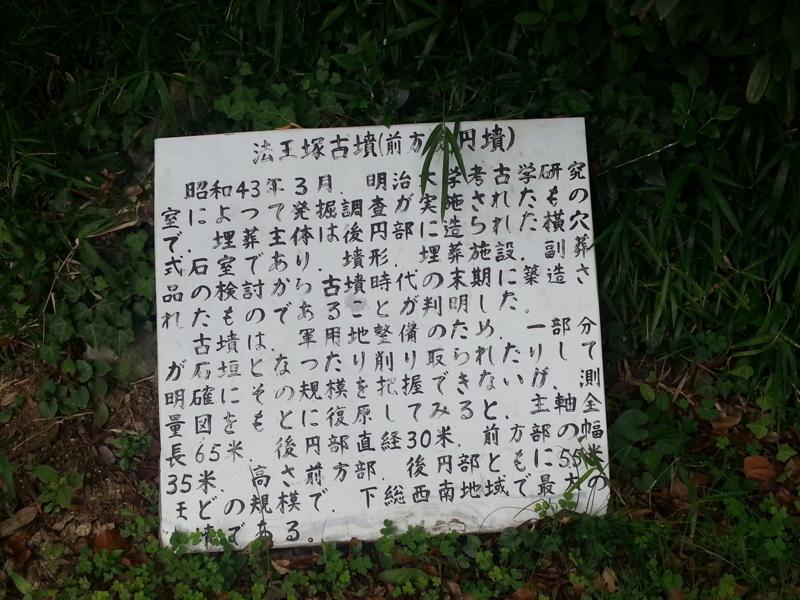 法王塚古墳(前方後円墳)
昭和43年3月、明治大学考古学研究
室によつて発掘調査が実施されたもの
で、埋葬主体は後円部に造られた横穴
式石室であり、墳形、埋葬施設、副葬
品の検討から古墳時代の末期に築造さ
れたものであることが判明した。
古墳は、軍用地整備のため、一部分
が石垣となつたり削り取られたりして
明確にその規模を把握できないが、測
量図をもとに復原してみると、主軸の全
長65米、後円部直経30米、前方部の幅
35米、高さ前方部、後円部ともに5.5米
ほどの規模で、下総西南地域で最大の
墳である。